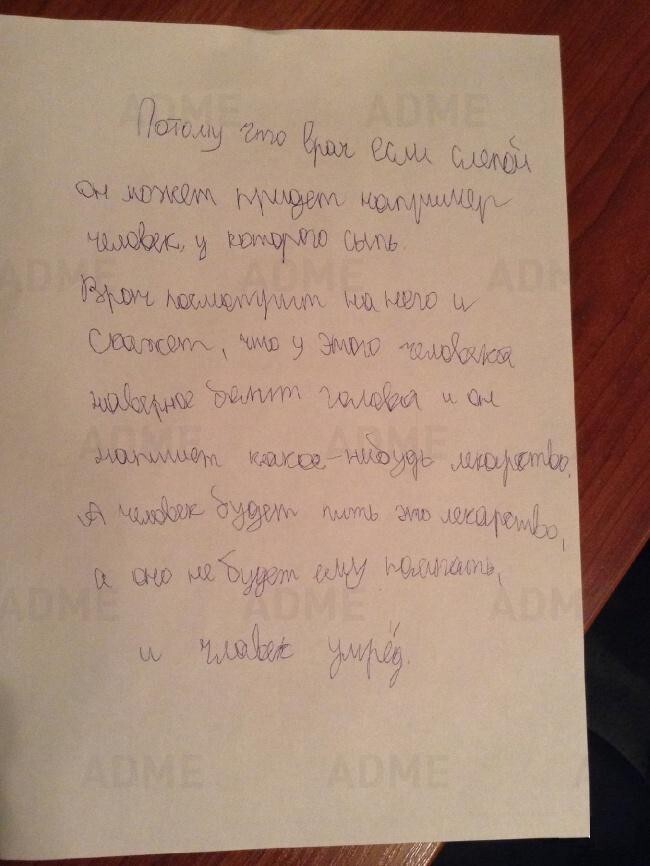 Потому что врач если слепой
он может придет например
человек, у которого сыпь.
Врач посмотрит на него и
скажет, что у этого человека
наверное болит голова и он
напишет какое-нибудь лекарство.
А человек будет пить это лекарство,
а оно не будет ему помогать,
и чловек умрёд.
ADME ADME
ADME ADME ADME
ADME ADME
ADME ADME ADME
ADME ADME